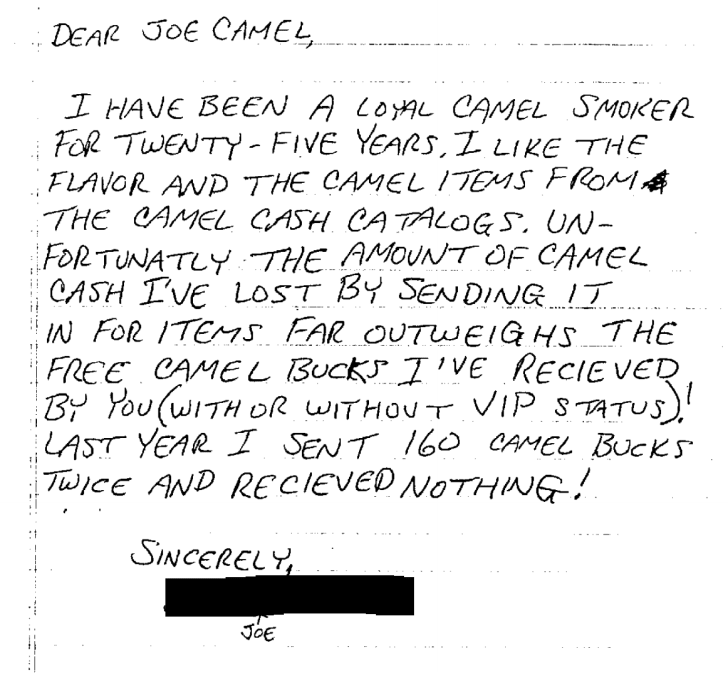 DEAR JOE CAMEL,
I HAVE BEEN A LOYAL CAMEL SMOKER
FOR TWENTY-FIVE YEARS. I LIKE THE
FLAVOR AND THE CAMEL ITEMS FROM
THE CAMEL CASH CATALOGS. UN-
FORTUNATLY THE AMOUNT OF CAMEL
CASH I'VE LOST BY SENDING IT
IN FOR ITEMS FAR OUTWEIGHS THE
FREE CAMEL BUCKS I'VE RECIEVED
BY YOU (WITH OR WITHOUT VIP STATUS)!
LAST YEAR I SENT 160 CAMEL BUCKS
TWICE AND RECIEVED NOTHING!
SINCERELY,
JOE